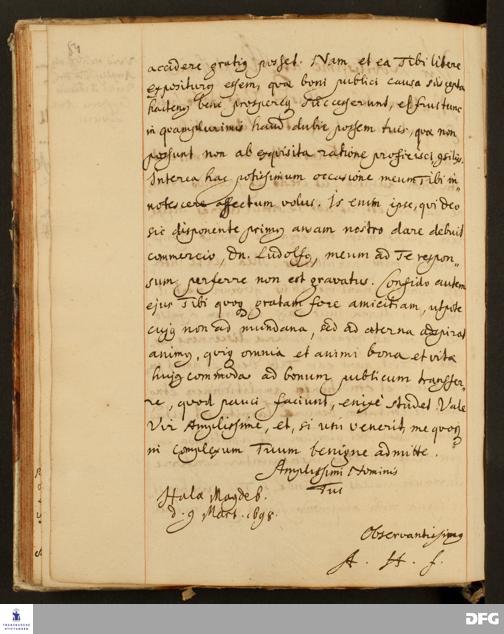 84
accidere gratiq posset. Nam et ea Tibi libere
expositurq essem, quæ boni publici causa sus cepta
hactenq bene prospereq successerunt, et frui tunc
in quamplurimis haud dubie possem tuis, quæ non
possunt non ab exquisita ratione proficisci, gsiliis.
Interea hac potissimum occasione meum Tibi in„
notescere affectum volui. Is enim ipse, qui deo
sic disponente primq ansam nostro dare debuit
commercio, Dn. Ludolfq, meum ad Te respon„
sum perferre non est gravatus. Confido autem
ejus Tibi quoq gratam fore amicitiam, utpote
cujq non ad mundana, sed ad æterna adspirat
animq, quiq omnia et animi bona et vitæ
hujq commoda ad bonum publicum transfer„
re, quod pauci faciunt, enixe studet. Vale
Vir Amplissime, et, si uti venerit, me quoq
in complexum Tuum benigne admitte.
Amplissimi Nominis
Tui
Hala Magdeb.
d. 9 Mart. 1698.
Observantissimq
A. H. f.
FRANCKESCHE
STIFTUNGEN
DFG